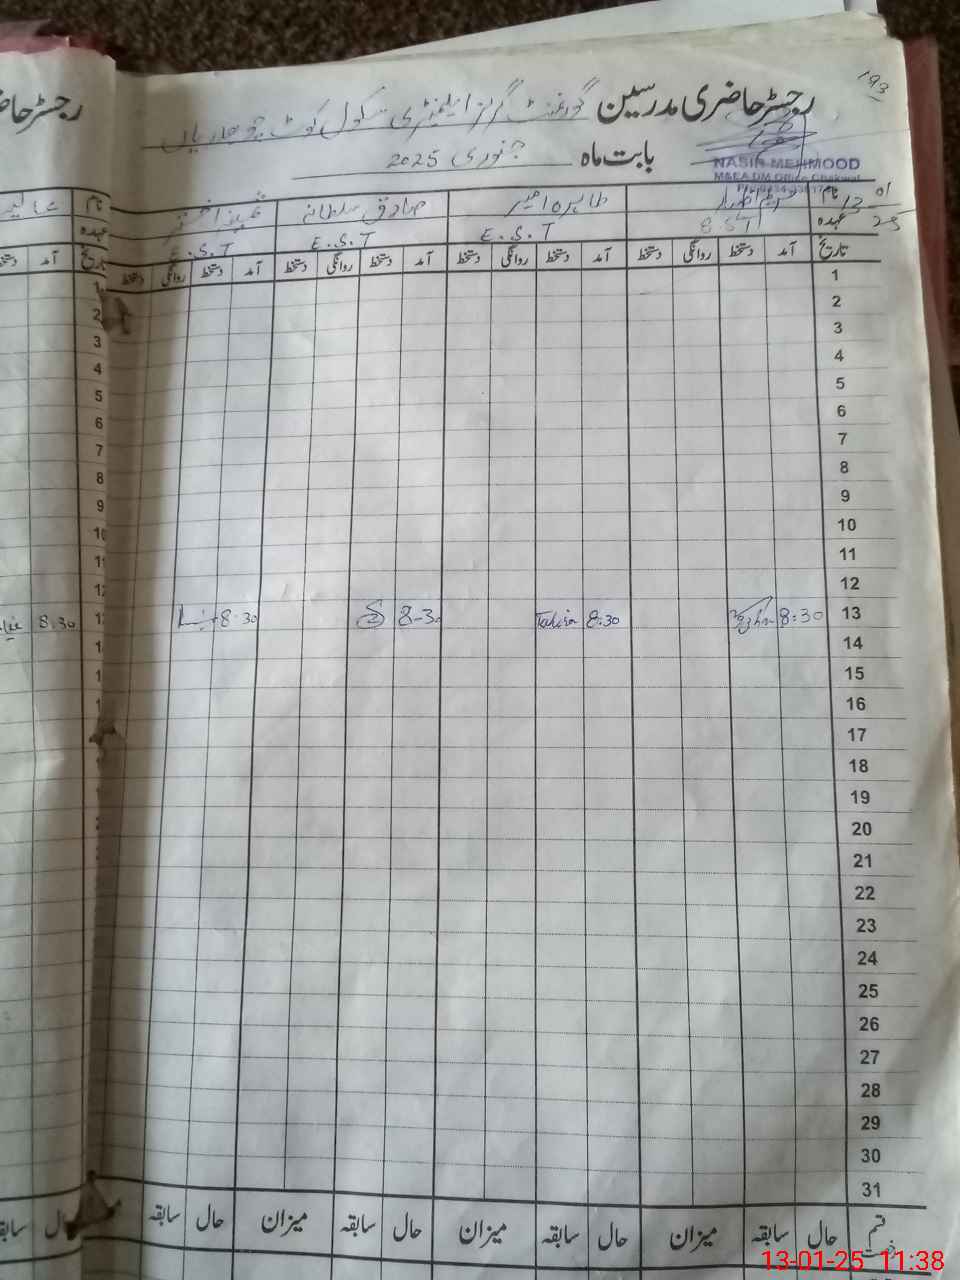 193
رجسٹر حاضری مدرسین گورنمنٹ گرلز ایلیمنٹری سکول کوٹ چوھدریاں
بابت ماہ جنوری 2025
NASIR MEHMOOD
M&EA DM Office Chakwal
رجسٹر حاض
نام طاہرہ امیر صادق سلطانہ ثمینہ اختر
عہدہ S.S.T E.S.T E.S.T E.S.T
نام عالیہ
عہدہ
13 01 25
تاریخ آمد دستخط روانگی دستخط آمد دستخط روانگی دستخط آمد دستخط روانگی دستخط آمد دستخط روانگی دستخط
تاریخ آمد
1
2
3
4
5
6
7
8
9
10
11
12
13 8:30 8:30 Tahira 8-30 8:30 8:30
14
15
16
17
18
19
20
21
22
23
24
25
26
27
28
29
30
31
قسم رخصت حال سابقہ میزان حال سابقہ میزان حال سابقہ میزان حال سابقہ
حال سابقہ
13-01-25 11:38